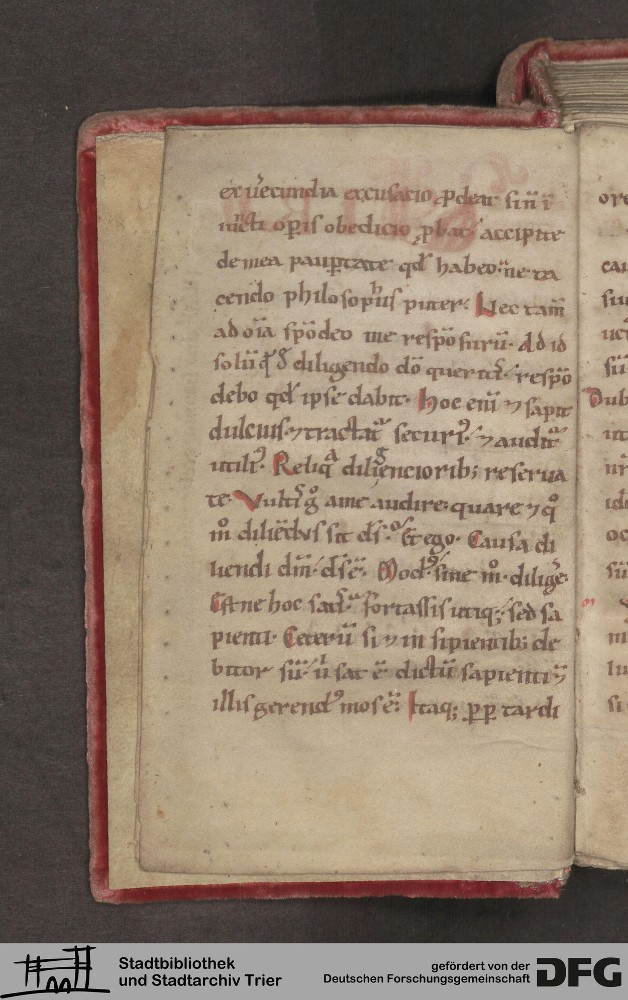 ex ůecundia excusacio ꝓdeat sin̄ ī
iniūcti oꝑis obedicio ꝓbat᷑ accipite
de mea pauꝑtate qd̓ habeo ne ta
cendo philosoph᷒ puter. Nec tam̄
ad oīa spōdeo me respōsurū. Ad id
solū qd̓ d̓ diligendo dō queritis respōdebo qd̓ ipse dabit. Hoc enī ⁊ sapit
dulcius ⁊ tractat᷑ securi᷒ ⁊ audit᷑
utili᷒. Reliqᵃ diligencioribꝫ reserua
te. Vultis gͦ a me audire quare ⁊ qͦ
mͦ diligēdus sit ds̄. Et ego. Causa di
ligendi dm̄ ds̄ ē. Mod᷒ sine mͦ diligē
Est ne hoc satis fortassis utiqꝫ sed sa
pienti. Ceterū si ⁊ in sipientibꝫ de
bitor sū ů sat ē dictū sapienti ⁊
illis gerend᷒ mos ē. Itaqꝫ ꝓꝑ tardi
ore
cau
Dub
ut
oc
si
Stadtbibliothek
und Stadtarchiv Trier
gefördert von der
Deutschen Forschungsgemeinschaft
DFG